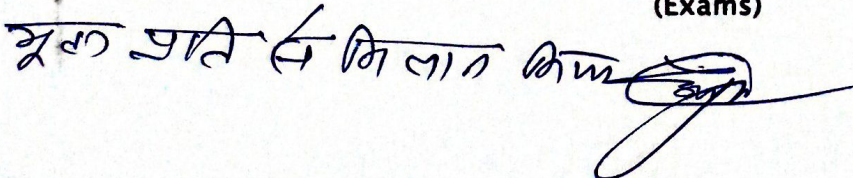 (Exams)
मूल प्रति से मिलान किया